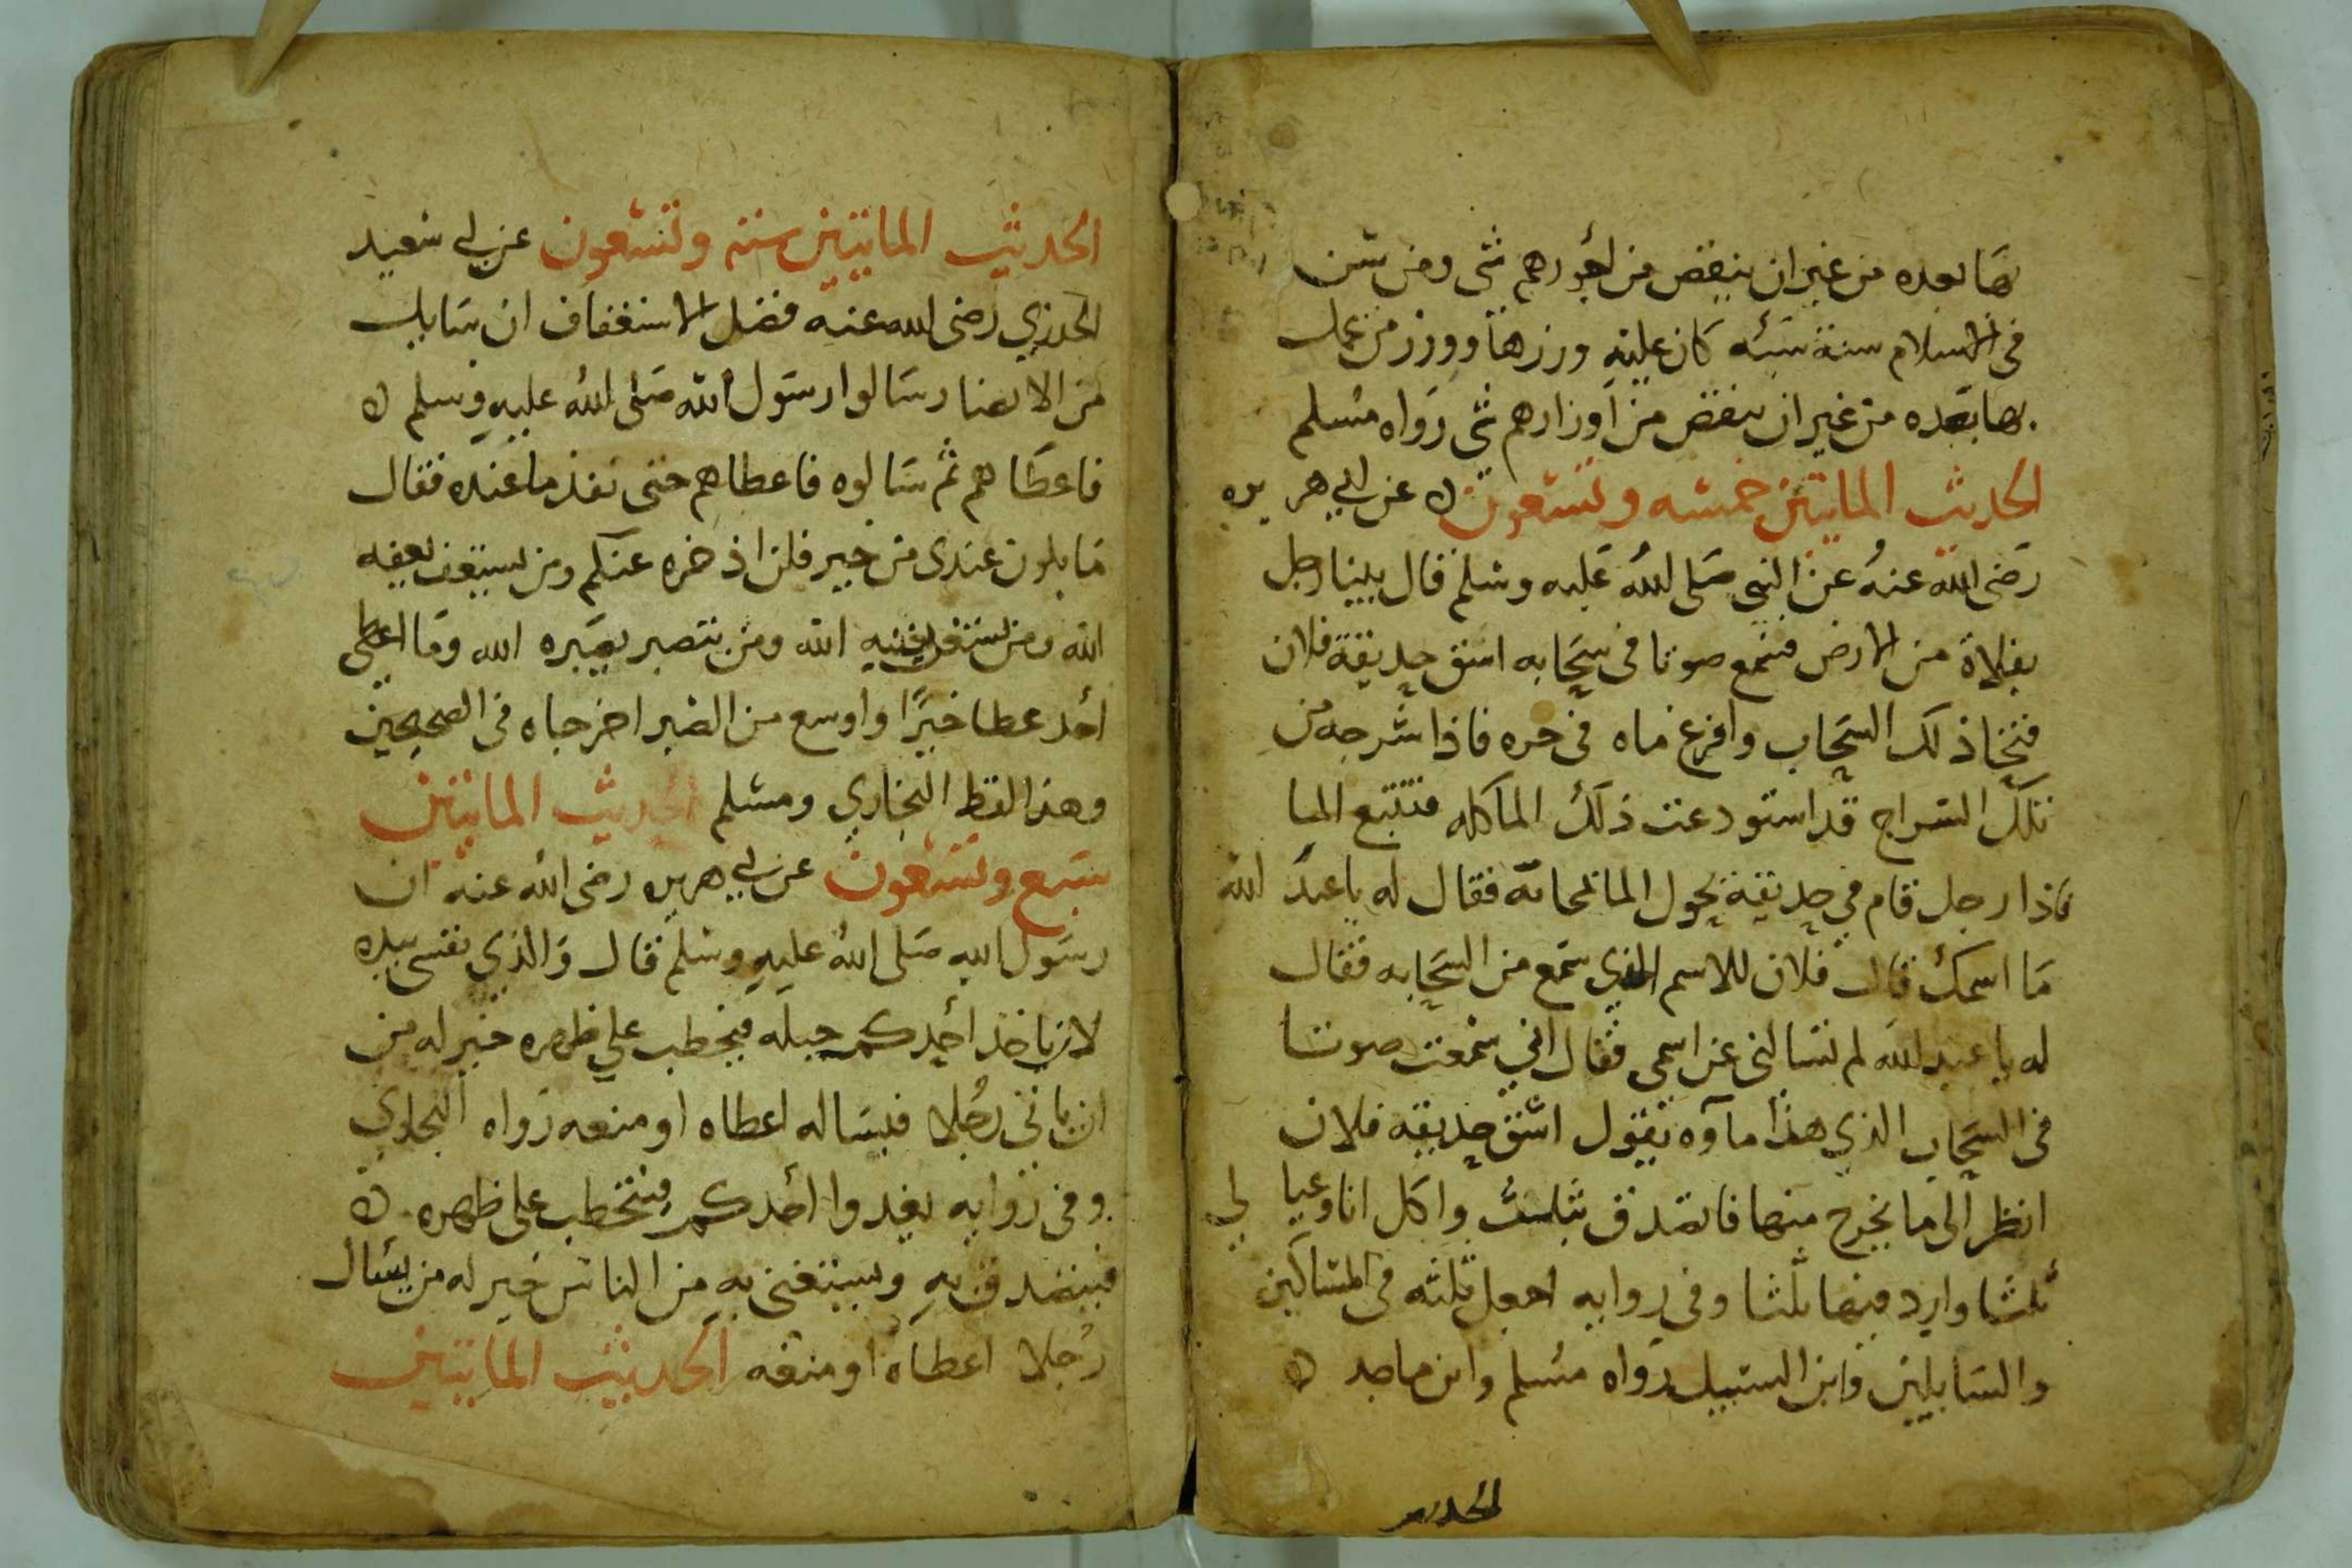 بها بعده من غير ان ينقص من اجورهم شى ومن سن
فى الاسلام سنة سيئه كان عليه وزرها ووزر من عمل
بها بعده من غير ان ينقص من اوزارهم شى رواه مسلم
الحديث المايتين خمسه وتسعون عن ابي هريره
رضى الله عنه عن النبى صلى الله عليه وسلم قال بينا رجل
بفلاة من الارض فسمع صوتا فى سحابه اسق حديقة فلان
فتنحا ذلك السحاب وافرغ ماه فى حره فاذا شرجه من
تلك الشراج قد استودعت ذلك الما كله فتتبع الما
فاذا رجل قام في حديقة يحول الما بمسحاته فقال له ياعبد الله
ما اسمك قال فلان للاسم الذي سمع من السحابه فقال
له يا عبد الله لم تسالنى عن اسمى فقال اني سمعت صوتا
فى السحاب الذي هذا ماوه يقول اسق حديقه فلان
انظر الى ما يخرج منها فاتصدق بثلث واكل انا وعيالي
ثلثا وارد فيها ثلثا وفى روايه اجعل ثلثه فى المساكين
والسايلين وابن السبيل رواه مسلم وابن ماجه
الحديث
الحديث المايتين سته وتسعون عن ابي سعيد
الخدري رضى الله عنه فضل الاستعفاف ان سايلا
من الانصار سالوا رسول الله صلى الله عليه وسلم
فاعطاهم ثم سالوه فاعطاهم حتى نفذ ما عنده فقال
ما يكون عندى من خير فلن اذخره عنكم ومن يستعف يعفه
الله ومن يستغن يغنيه الله ومن يتصبر يصبره الله وما اعطى
احد عطا خيرًا واوسع من الصبر اخرجاه فى الصحيحين
وهذا لفظ البخاري ومسلم الحديث المايتين
سبع وتسعون عن ابي هريره رضى الله عنه ان
رسول الله صلى الله عليه وسلم قال والذي نفسى بيده
لان ياخذ احدكم حبله فيحطب علي ظهره خير له من
ان ياتى رجلا فيساله اعطاه او منعه رواه البخاري
وفى روايه يغدوا احدكم فيتحطب على ظهره
فيتصدق به ويستغنى به من الناس خير له من يسال
رجلا اعطاه او منعه الحديث المايتين